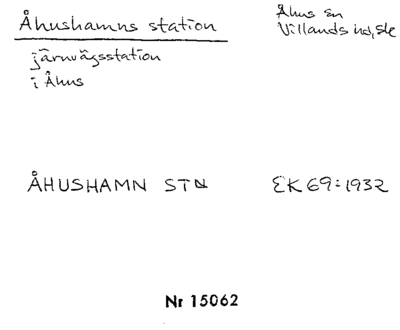 Åhushamns station
Åhus sn
Villands hd, sk
järnvägsstation
i Åhus
ÅHUSHAMN STN
EK 69:1932
Nr 15062